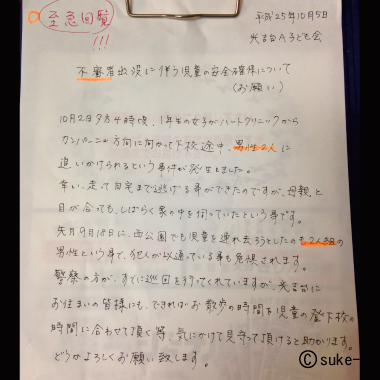 至急回覧
!!!
平成25年10月5日
光吉台A子ども会
不審者出没に伴う児童の安全確保について
(お願い)
10月2日夕方4時頃、1年生の女子がハートクリニックから
カンパーニュ方向に向かって下校途中、男性2人に
追いかけられるという事件が発生しました。
幸い、走って自宅まで逃げる事ができたのですが、母親と
目が合っても、しばらく家の中を伺っていたという事です。
先月9月18日に、西公園でも児童を連れ去ろうとしたのも2人組の
男性という事で、犯人が似通っている事も危惧されます。
警察の方が、すでに巡回を行ってくれていますが、光吉台に
お住いの皆様にも、できればお散歩の時間を児童の登下校の
時間に合わせて頂く等、気にかけて見守って頂けると助かります。
どうかよろしくお願い致します。
©suke-